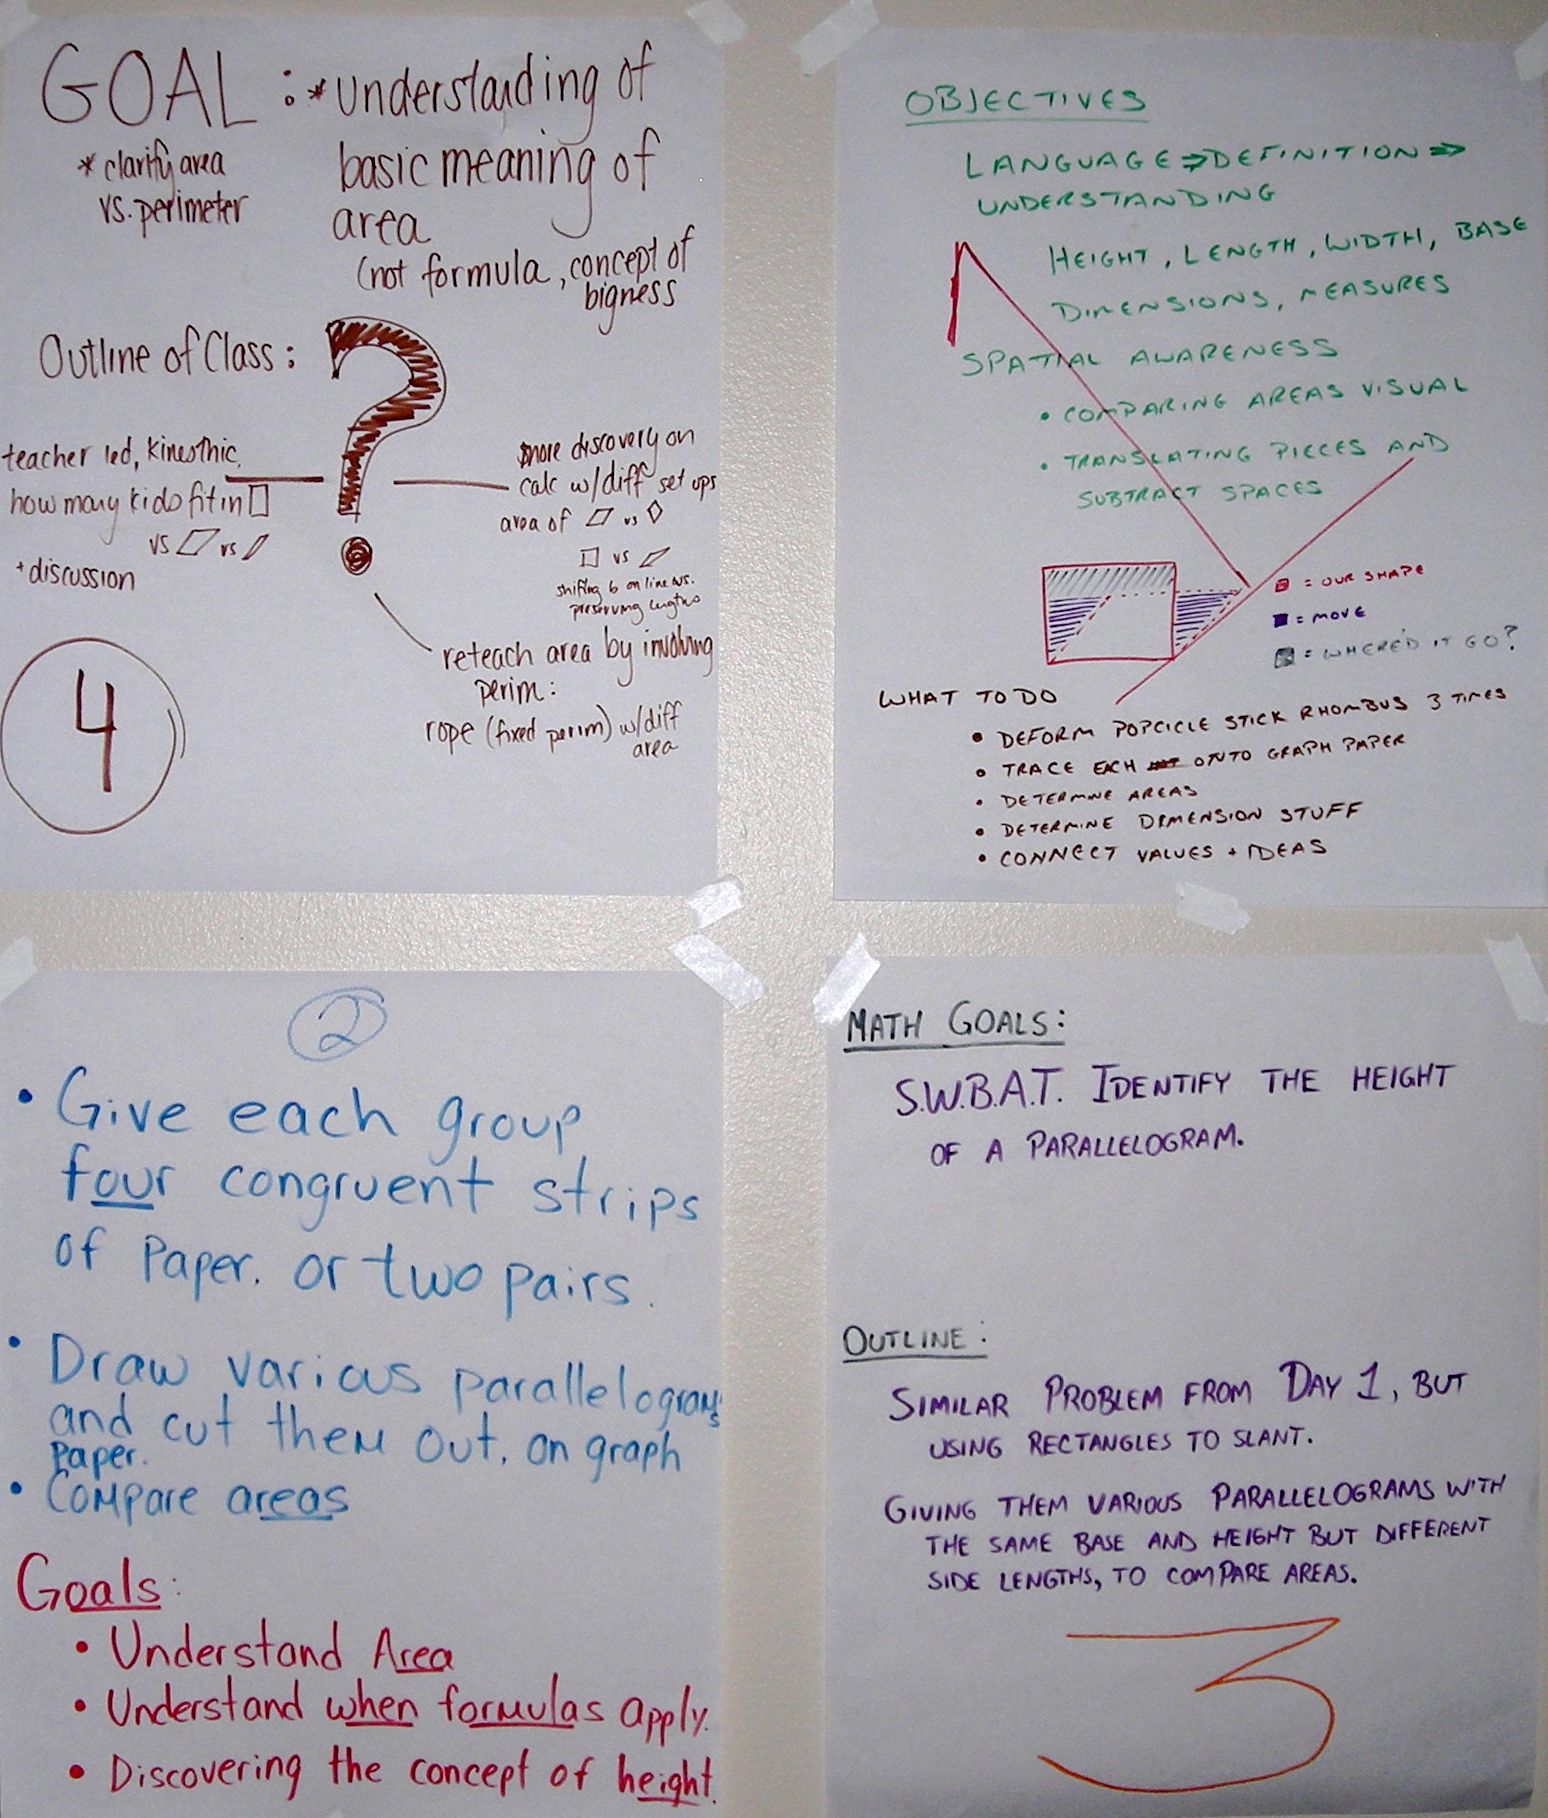 GOAL : * Understanding of
basic meaning of
area
(not formula, concept of
bigness
* clarify area
vs. perimeter
Outline of Class :
teacher led, kinesthic,
how many kids fit in
vs vs
+ discussion
more discovery on
calc w/diff set ups
area of vs
vs
shifting on line
preserving lengths
reteach area by involving
perim:
rope (fixed perim) w/diff
area
4
OBJECTIVES
LANGUAGE ⇒ DEFINITION ⇒
UNDERSTANDING
HEIGHT, LENGTH, WIDTH, BASE
DIMENSIONS, MEASURES
SPATIAL AWARENESS
• COMPARING AREAS VISUAL
• TRANSLATING PIECES AND
SUBTRACT SPACES
= OUR SHAPE
= MOVE
= WHERE'D IT GO?
WHAT TO DO
• DEFORM POPCICLE STICK RHOMBUS 3 TIMES
• TRACE EACH ONTO GRAPH PAPER
• DETERMINE AREAS
• DETERMINE DIMENSION STUFF
• CONNECT VALUES + IDEAS
2
• Give each group
four congruent strips
of Paper. or two pairs.
• Draw various parallelograms
and cut them out. on graph
Paper.
• Compare areas
Goals:
• Understand Area
• Understand when formulas apply.
• Discovering the concept of height.
MATH GOALS:
S.W.B.A.T. IDENTIFY THE HEIGHT
OF A PARALLELOGRAM.
OUTLINE:
SIMILAR PROBLEM FROM DAY 1, BUT
USING RECTANGLES TO SLANT.
GIVING THEM VARIOUS PARALLELOGRAMS WITH
THE SAME BASE AND HEIGHT BUT DIFFERENT
SIDE LENGTHS, TO COMPARE AREAS.
3